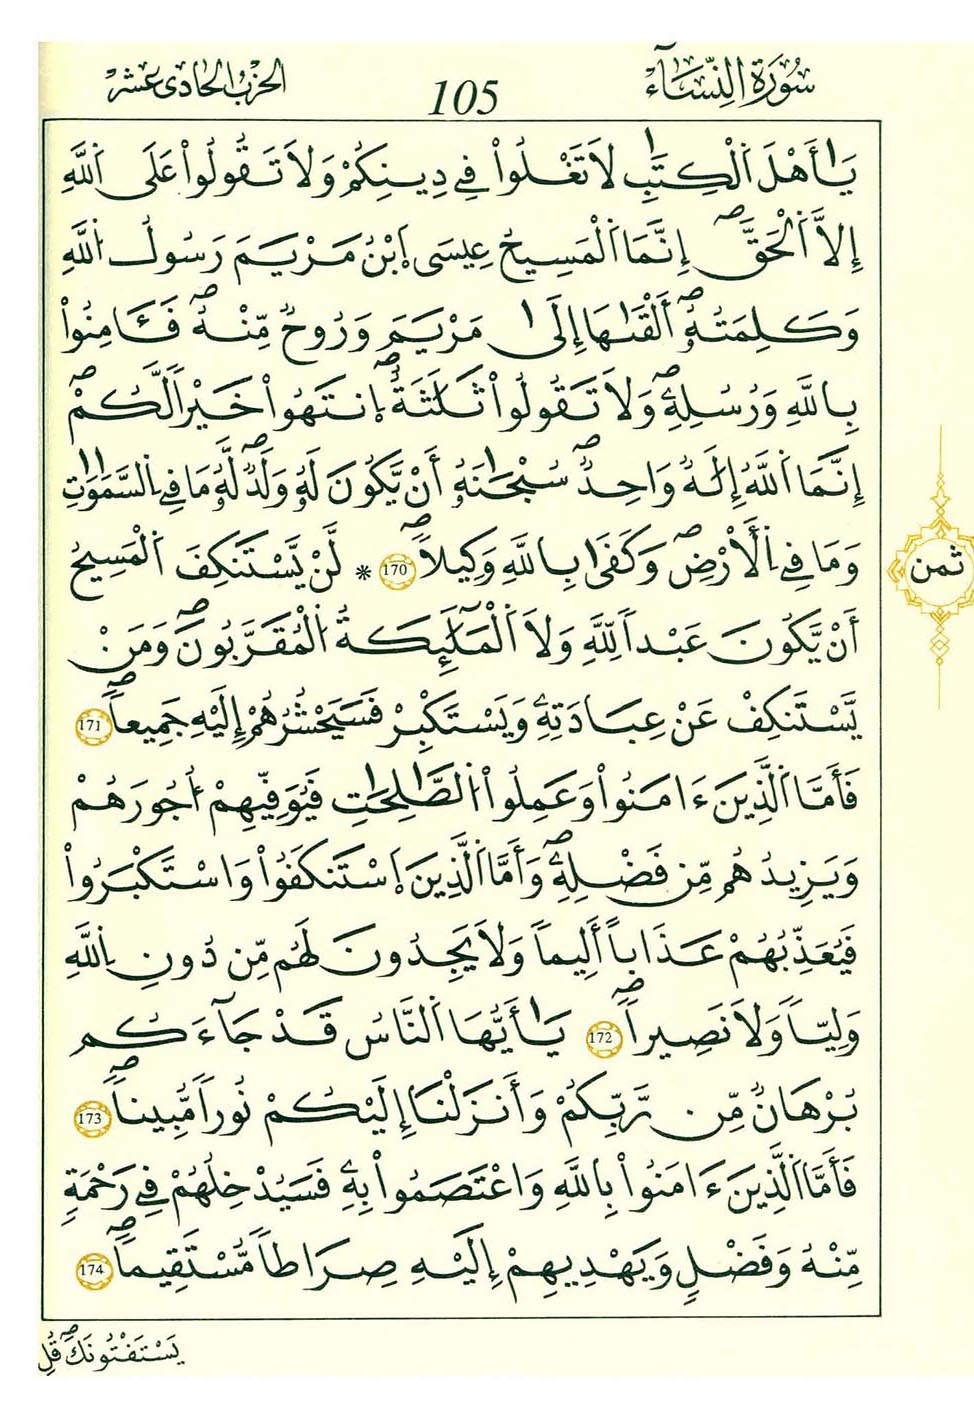 سُورَةُ النِّسَآءِ
105
الحِزْبُ الحَادِى عَشَرَ
يَٰأَهْلَ اَ۬لْكِتَٰبِ لَا تَغْلُواْ فِے دِينِكُمْ وَلَا تَقُولُواْ عَلَى اَ۬للَّهِ
إِلَّا اَ۬لْحَقَّۖ إِنَّمَا اَ۬لْمَسِيحُ عِيسَى اَ۪بْنُ مَرْيَمَ رَسُولُ اُ۬للَّهِ
وَكَلِمَتُهُۥۖ أَلْقَىٰهَا إِلَىٰ مَرْيَمَ وَرُوحٌ مِّنْهُۖ فَـَٔامِنُواْ
بِاللَّهِ وَرُسُلِهِۦۖ وَلَا تَقُولُواْ ثَلَٰثَةٌۖ اِ۪نتَهُواْ خَيْراً لَّكُمْۖ
إِنَّمَا اَ۬للَّهُ إِلَٰهٌ وَٰحِدٌۖ سُبْحَٰنَهُۥ أَنْ يَّكُونَ لَهُۥ وَلَدٌۖ لَّهُۥ مَا فِے اِ۬لسَّمَٰوَٰتِ
وَمَا فِے اِ۬لْأَرْضِۖ وَكَفَىٰ بِاللَّهِ وَكِيلاًۖ 170 * لَّنْ يَّسْتَنكِفَ اَ۬لْمَسِيحُ
أَنْ يَّكُونَ عَبْداً لِّلَّهِ وَلَا اَ۬لْمَلَٰٓئِكَةُ اُ۬لْمُقَرَّبُونَۖ وَمَنْ
يَّسْتَنكِفْ عَنْ عِبَادَتِهِۦ وَيَسْتَكْبِرْ فَسَيَحْشُرُهُمْ إِلَيْهِ جَمِيعاًۖ 171
فَأَمَّا اَ۬لَّذِينَ ءَامَنُواْ وَعَمِلُواْ اُ۬لصَّٰلِحَٰتِ فَيُوَفِّيهِمْ أُجُورَهُمْ
وَيَزِيدُهُم مِّن فَضْلِهِۦۖ وَأَمَّا اَ۬لَّذِينَ اَ۪سْتَنكَفُواْ وَاسْتَكْبَرُواْ
فَيُعَذِّبُهُمْ عَذَاباً أَلِيماً وَلَا يَجِدُونَ لَهُم مِّن دُونِ اِ۬للَّهِ
وَلِيّاً وَلَا نَصِيراًۖ 172 يَٰأَيُّهَا اَ۬لنَّاسُ قَدْ جَآءَكُم
بُرْهَٰنٌ مِّن رَّبِّكُمْ وَأَنزَلْنَا إِلَيْكُمْ نُوراً مُّبِيناًۖ 173
فَأَمَّا اَ۬لَّذِينَ ءَامَنُواْ بِاللَّهِ وَاعْتَصَمُواْ بِهِۦ فَسَيُدْخِلُهُمْ فِے رَحْمَةٍ
مِّنْهُ وَفَضْلٍ وَيَهْدِيهِمْ إِلَيْهِ صِرَاطاً مُّسْتَقِيماًۖ 174
ثمن
يَسْتَفْتُونَكَۖ قُلِ